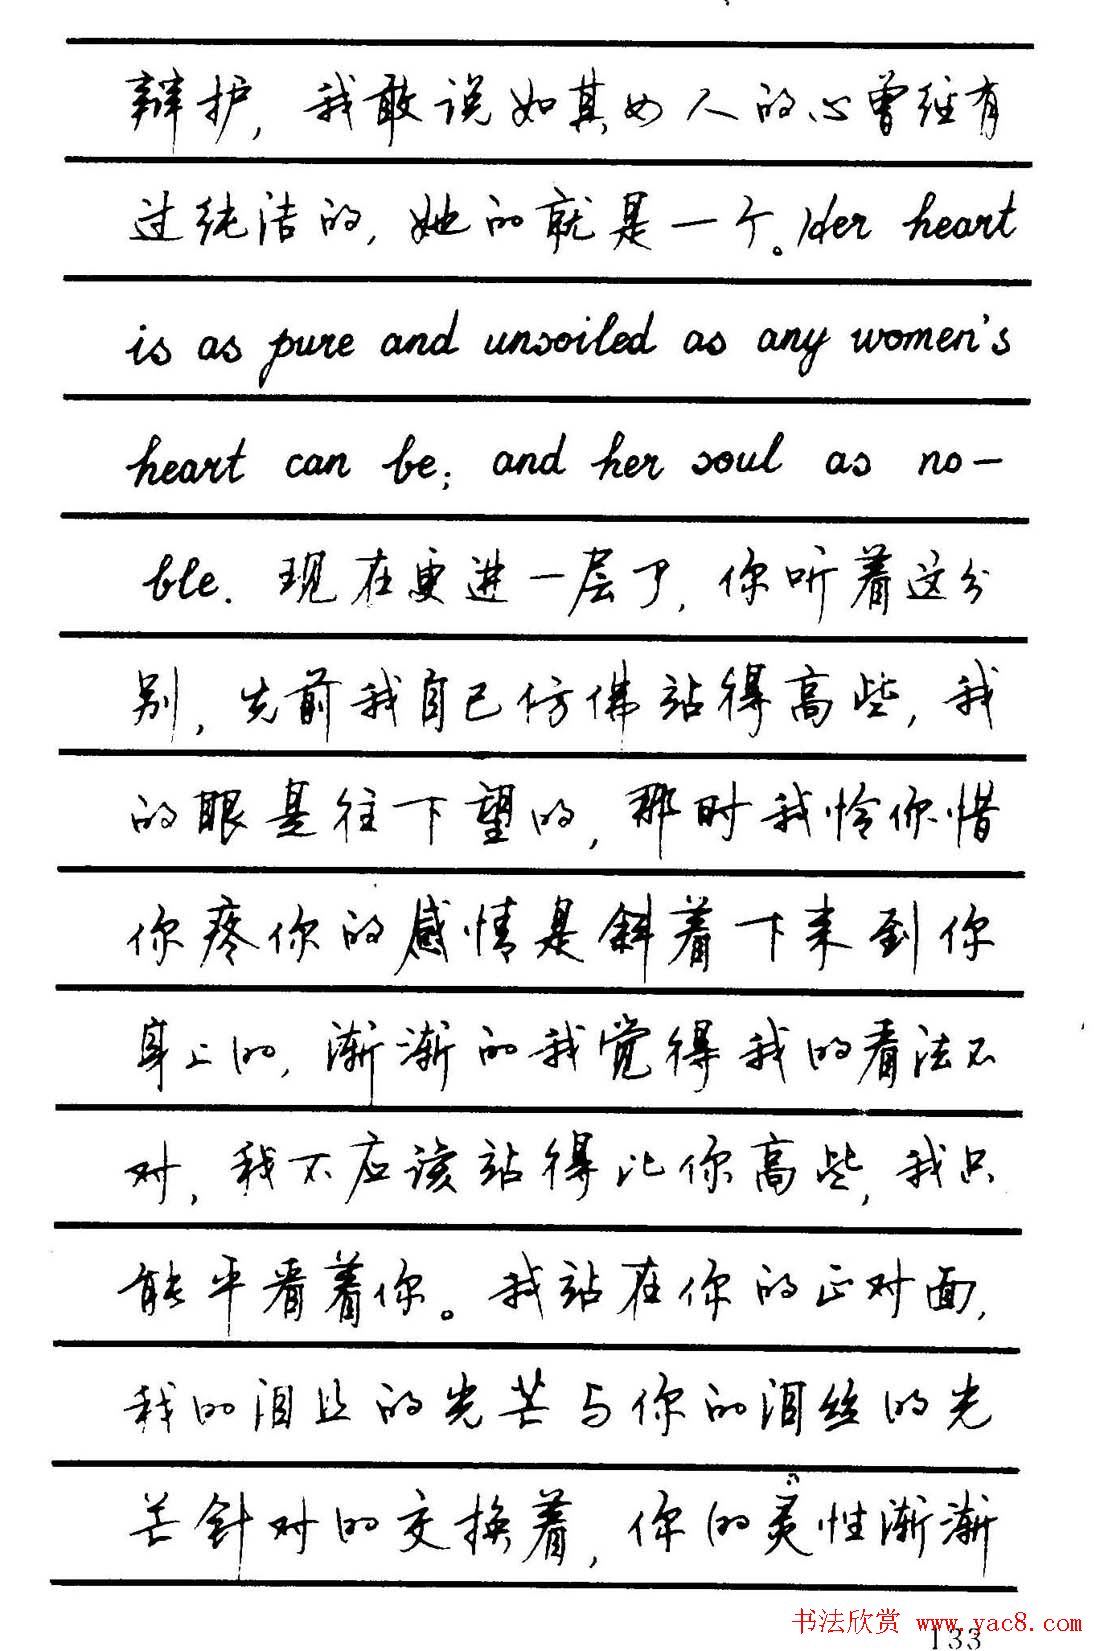 辩护, 我敢说如其女人的心曾经有
过纯洁的, 她的就是一个。Her heart
is as pure and unsoiled as any women's
heart can be; and her soul as no-
ble. 现在更进一层了, 你听着这分
别, 先前我自己仿佛站得高些, 我
的眼是往下望的, 那时我怜你惜
你疼你的感情是斜着下来到你
身上的, 渐渐的我觉得我的看法不
对, 我不应该站得比你高些, 我只
能平看着你。我站在你的正对面,
我的泪丝的光芒与你的泪丝的光
芒针对的交换着, 你的灵性渐渐
书法欣赏 www.yac8.com
133